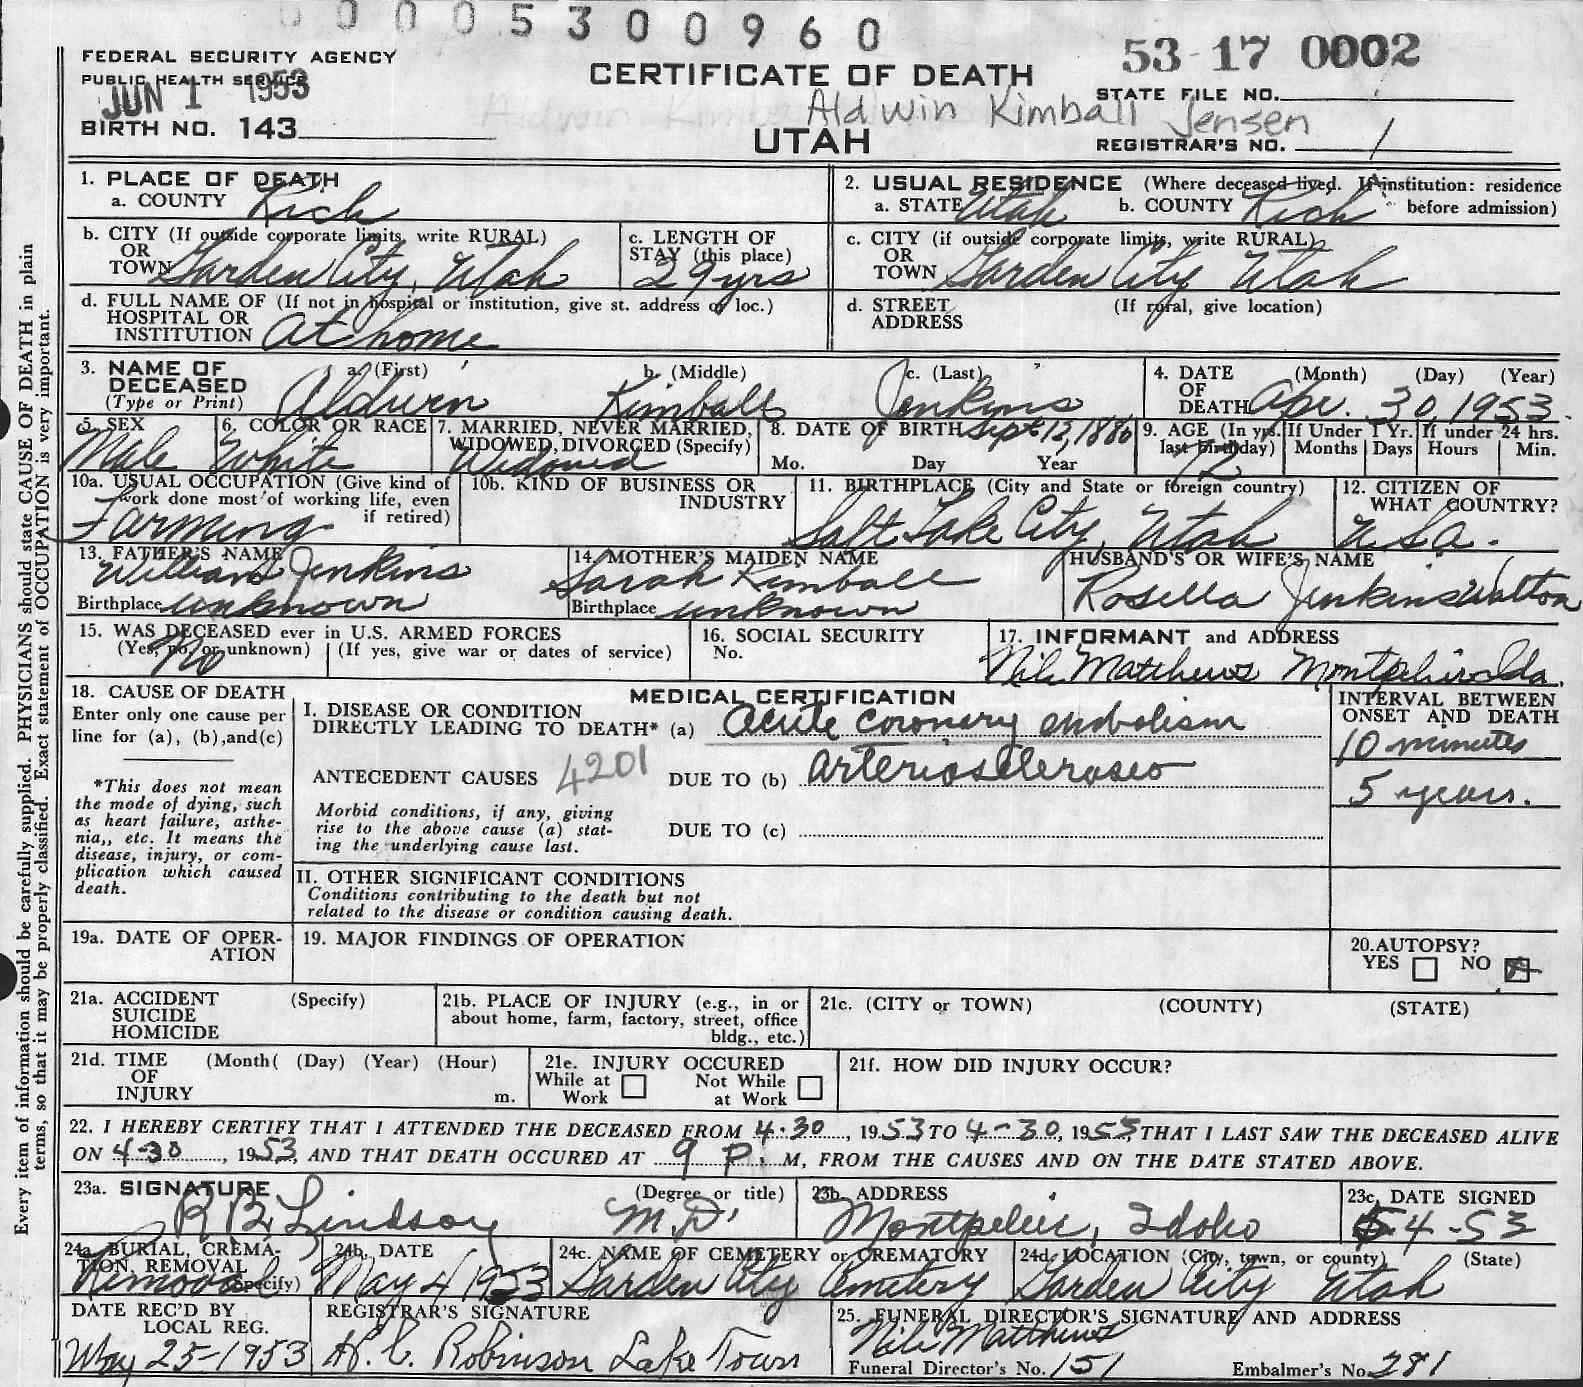 0 0 0 0 5 3 0 0 9 6 0
FEDERAL SECURITY AGENCY
PUBLIC HEALTH SERVICE
JUN 1 1953
BIRTH NO. 143
CERTIFICATE OF DEATH
Aldwin Kimball Jensen
UTAH
53-17 0002
STATE FILE NO.
REGISTRAR'S NO. 1
1. PLACE OF DEATH
a. COUNTY Rich
2. USUAL RESIDENCE (Where deceased lived. If institution: residence
a. STATE Utah b. COUNTY Rich before admission)
b. CITY (If outside corporate limits, write RURAL)
OR
TOWN Garden City, Utah
c. LENGTH OF
STAY (this place)
29 yrs
c. CITY (if outside corporate limits, write RURAL)
OR
TOWN Garden City Utah
d. FULL NAME OF (If not in hospital or institution, give st. address or loc.)
HOSPITAL OR
INSTITUTION At home
d. STREET (If rural, give location)
ADDRESS
3. NAME OF a. (First) b. (Middle) c. (Last)
DECEASED
(Type or Print) Aldwin Kimball Jenkins
4. DATE (Month) (Day) (Year)
OF
DEATH Apr. 30, 1953
5. SEX
Male
6. COLOR OR RACE
White
7. MARRIED, NEVER MARRIED,
WIDOWED, DIVORCED (Specify)
Widowed
8. DATE OF BIRTH Sept 13, 1880
Mo. Day Year
9. AGE (In yrs.
last birthday)
72
If Under 1 Yr.
Months Days
If under 24 hrs.
Hours Min.
10a. USUAL OCCUPATION (Give kind of
work done most of working life, even
if retired)
Farming
10b. KIND OF BUSINESS OR
INDUSTRY
11. BIRTHPLACE (City and State or foreign country)
Salt Lake City, Utah
12. CITIZEN OF
WHAT COUNTRY?
U.S.A.
13. FATHER'S NAME
William Jenkins
Birthplace unknown
14. MOTHER'S MAIDEN NAME
Sarah Kimball
Birthplace unknown
HUSBAND'S OR WIFE'S NAME
Rosella Jenkins Walton
15. WAS DECEASED ever in U.S. ARMED FORCES
(Yes, no, or unknown) (If yes, give war or dates of service)
No
16. SOCIAL SECURITY
No.
17. INFORMANT and ADDRESS
Matthews Ida.
18. CAUSE OF DEATH
Enter only one cause per
line for (a), (b),and(c)
*This does not mean
the mode of dying, such
as heart failure, asthe-
nia,, etc. It means the
disease, injury, or com-
plication which caused
death.
MEDICAL CERTIFICATION
I. DISEASE OR CONDITION
DIRECTLY LEADING TO DEATH* (a) Acute coronary embolism
ANTECEDENT CAUSES 4201 DUE TO (b) arteriosclerosis
Morbid conditions, if any, giving
rise to the above cause (a) stat-
ing the underlying cause last.
DUE TO (c)
INTERVAL BETWEEN
ONSET AND DEATH
10 minutes
5 years.
II. OTHER SIGNIFICANT CONDITIONS
Conditions contributing to the death but not
related to the disease or condition causing death.
19a. DATE OF OPER-
ATION
19. MAJOR FINDINGS OF OPERATION
20.AUTOPSY?
YES NO
21a. ACCIDENT (Specify)
SUICIDE
HOMICIDE
21b. PLACE OF INJURY (e.g., in or
about home, farm, factory, street, office
bldg., etc.)
21c. (CITY or TOWN) (COUNTY) (STATE)
21d. TIME (Month( (Day) (Year) (Hour)
OF
INJURY m.
21e. INJURY OCCURED
While at Work
Not While at Work
21f. HOW DID INJURY OCCUR?
22. I HEREBY CERTIFY THAT I ATTENDED THE DECEASED FROM 4-30, 1953 TO 4-30, 1953, THAT I LAST SAW THE DECEASED ALIVE
ON 4-30, 1953, AND THAT DEATH OCCURED AT 9 P. M, FROM THE CAUSES AND ON THE DATE STATED ABOVE.
23a. SIGNATURE (Degree or title)
R B Lindsay M.D.
23b. ADDRESS
Montpelier, Idaho
23c. DATE SIGNED
5-4-53
24a. BURIAL, CREMA-
TION, REMOVAL
(Specify)
Removal
24b. DATE
May 4 1953
24c. NAME OF CEMETERY or CREMATORY
Garden City Cemetery
24d. LOCATION (City, town, or county) (State)
Garden City Utah
DATE REC'D BY
LOCAL REG.
May 25-1953
REGISTRAR'S SIGNATURE
H. C. Robinson Lake Town
25. FUNERAL DIRECTOR'S SIGNATURE AND ADDRESS
Matthews
Funeral Director's No. 151 Embalmer's No. 281
Every item of information should be carefully supplied. PHYSICIANS should state CAUSE OF DEATH in plain
terms, so that it may be properly classified. Exact statement of OCCUPATION is very important.